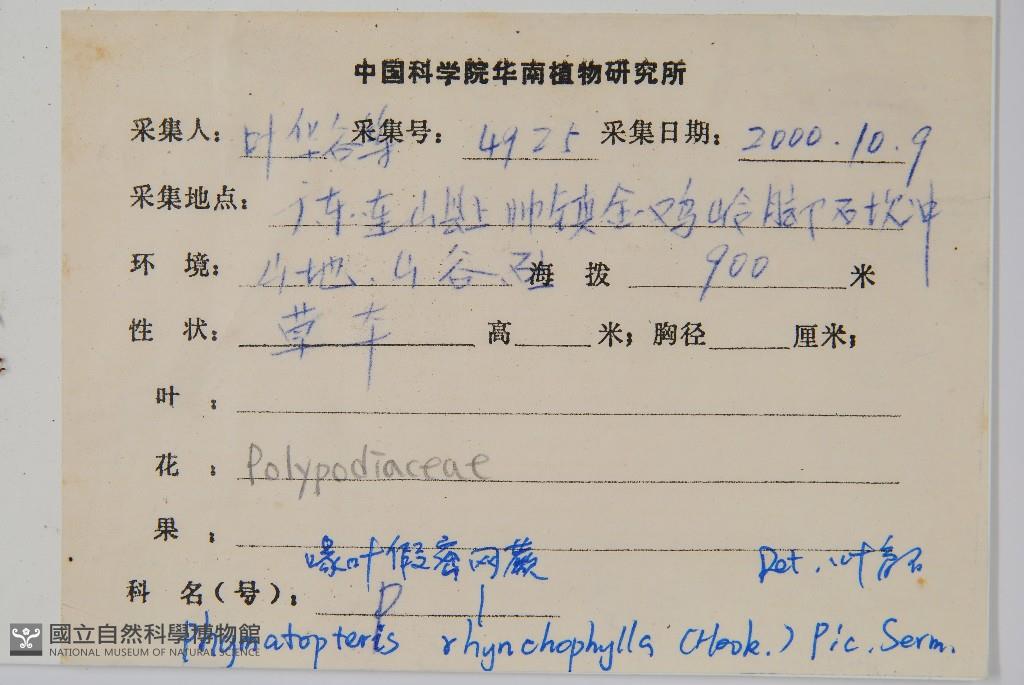 中国科学院华南植物研究所
采集人: 叶华谷等 采集号: 4925 采集日期: 2000.10.9
采集地点: 广东.连山县上帅镇金鸡岭脚下石坎冲
环 境: 山地.山谷. 海 拨 900 米
性 状: 草本 高 米; 胸径 厘米;
叶 :
花 : Polypodiaceae
果 :
喙叶假密网蕨 Det. 叶
科 名(号): P 1
Phymatopteris rhynchophylla (Hook.) Pic. Serm.
國立自然科學博物館
NATIONAL MUSEUM OF NATURAL SCIENCE